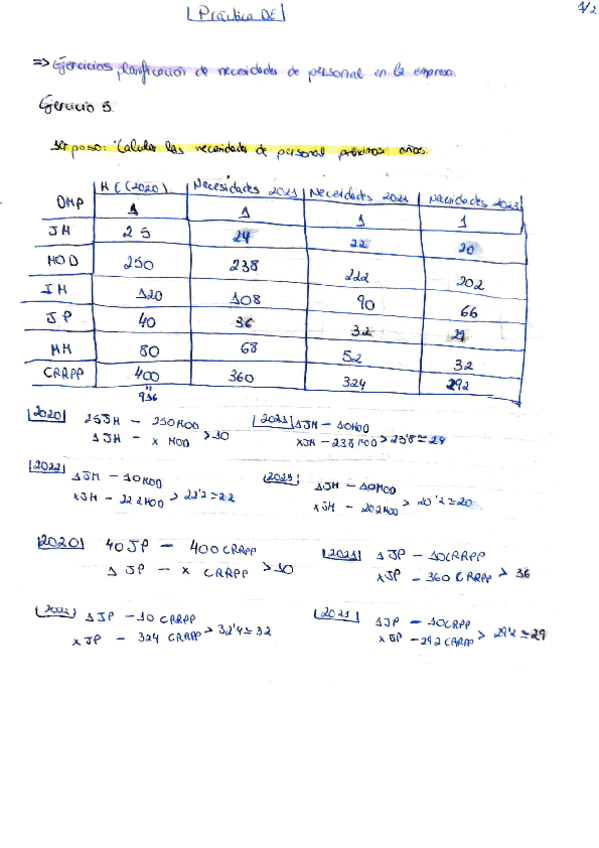 Práctica DE
1/2
=> Ejercicios planificación de necesidades de personal en la empresa.
Ejercicio 5.
1er paso: Calcular las necesidades de personal próximos años.
M E (2020) Necesidades 2021 Necesidades 2022 Necesidades 2023
DMP 1 1 1 1
JM 25 24 22 20
MOD 250 238 222 202
IM 120 108 90 66
JP 40 36 32 29
MM 80 68 52 32
CRRPP 400 360 324 292
"
936
2020 25JM - 250MOD
1JM - x MOD > 10
2021 1JM - 10MOD
xJM - 238MOD > 23'8 ≃ 24
2022 1JM - 10MOD
xJM - 222MOD > 22'2 ≃ 22
2023 1JM - 10MOD
xJM - 202MOD > 20'2 ≃ 20
2020 40JP - 400CRRPP
1 JP - x CRRPP > 10
2021 1JP - 10CRRPP
xJP - 360 CRRPP > 36
2022 1JP - 10 CRRPP
xJP - 324 CRRPP > 32'4 ≃ 32
1JP - 10CRRPP
xJP - 292 CRRPP > 29'2 ≃ 29